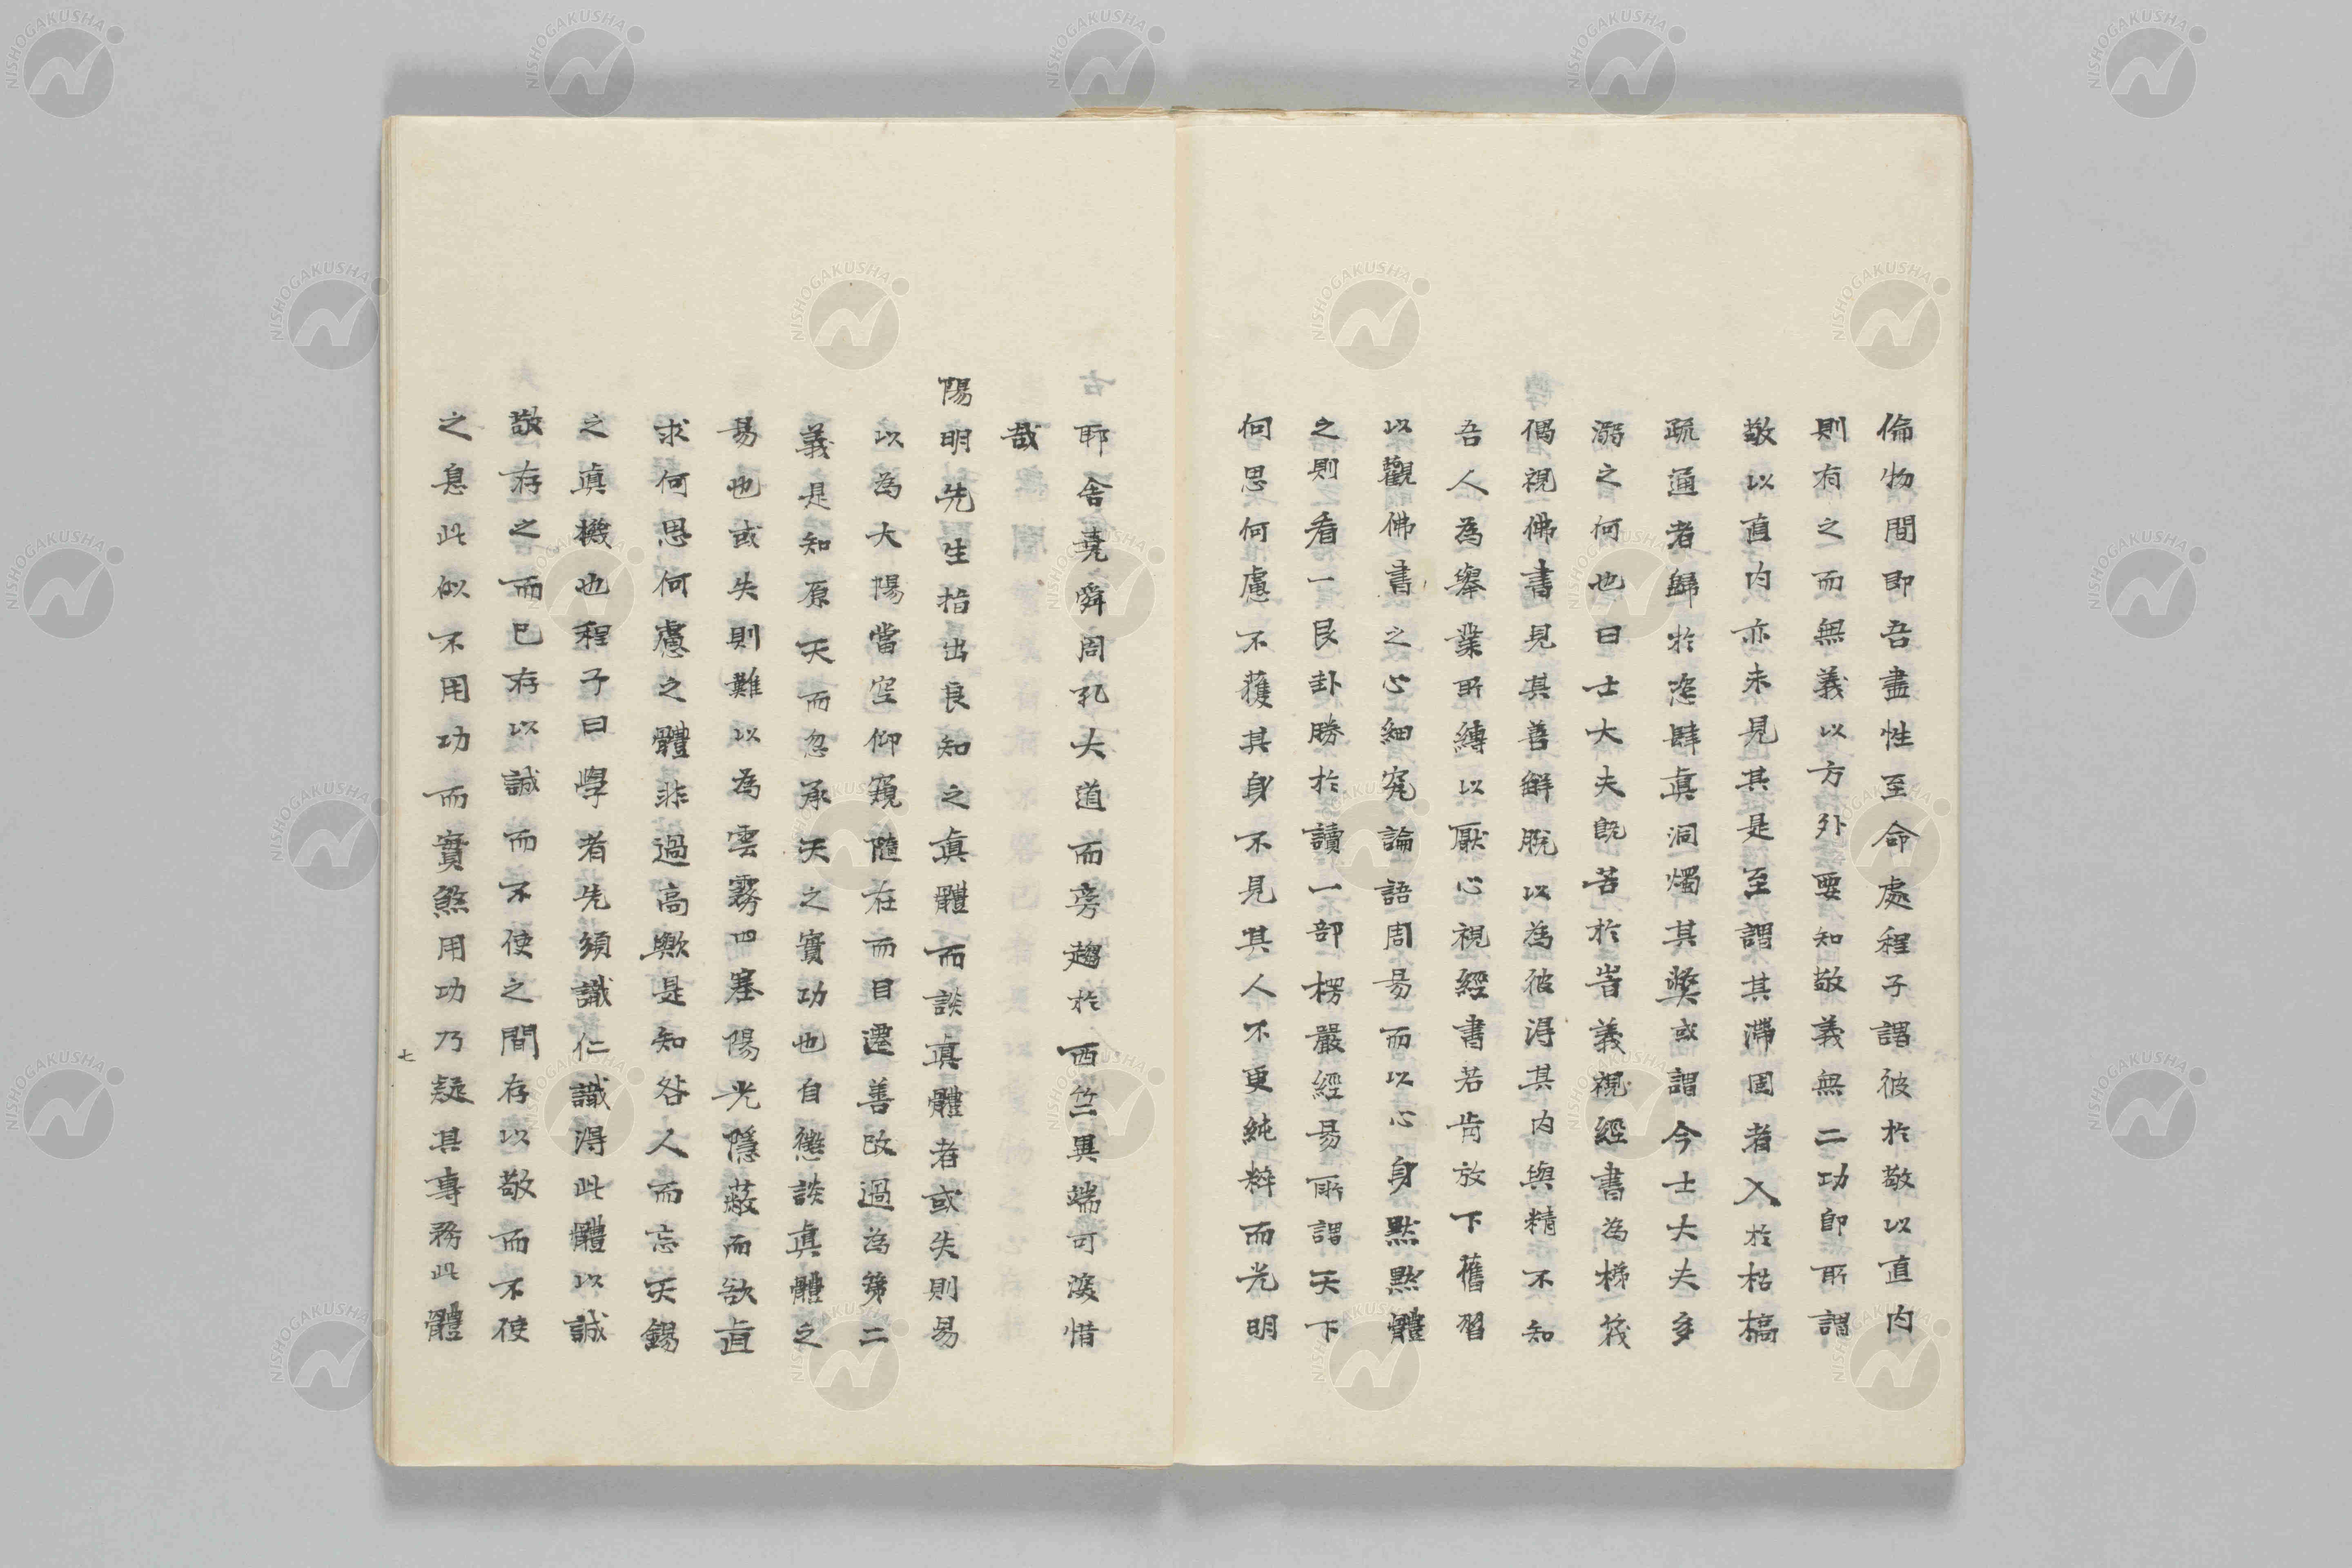 倫物間即吾盡性至命處程子謂彼於敬以直内
則有之而無義以方外要知敬義無二功即所謂
敬以直内亦未見其是至謂其滯固者入於枯槁
疏通者歸於恣肆真洞燭其獘或謂今士大夫多
溺之何也曰士大夫既苦於訾義視經書為梯筏
偶視佛書見其善觧脱以為彼得其内與精不知
吾人為舉業所縛以厭心視經書若肯放下舊習
以觀佛書之心細究論語周易而以心身黙黙體
之則看一艮卦勝於讀一部楞嚴經易所謂天下
何思何慮不獲其身不見其人不更純粹而光明
耶舍堯舜周孔大道而旁趨於西竺異端可深惜
哉
陽明先生指出良知之真體而談真體者或失則易
以為大陽當空仰窺隨在而目遷善改過為第二
義是知原天而忽承天之實功也自懲談真體之
易也或失則難以為雲霧四塞陽光隱蔽而欲直
求何思何慮之體非過高歟是知咎人而忘天錫
之真機也程子曰學者先須識仁識得此體以誠
敬存之而已存以誠而不使之間存以敬而不使
之息此似不用功而實煞用功乃疑其專務此體
七
NISHOGAKUSHA